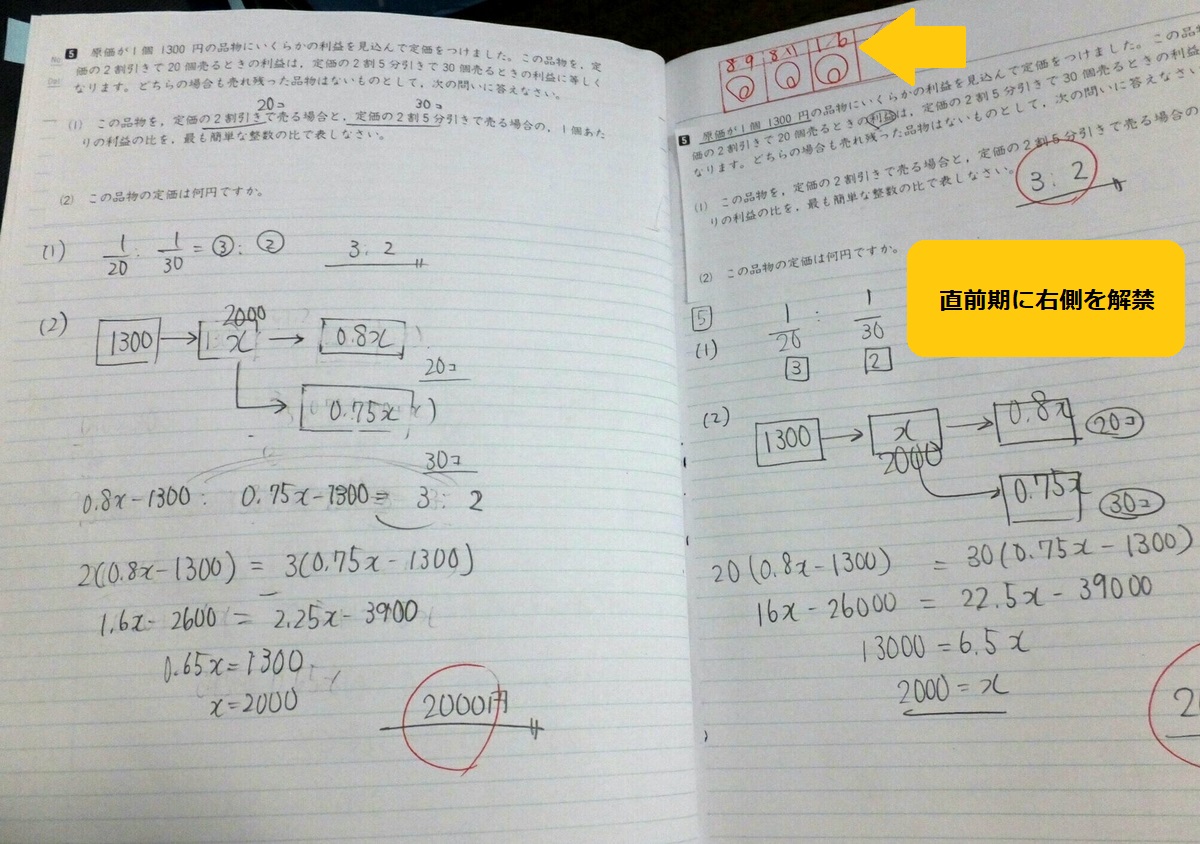 5 原価が1個 1300 円の品物にいくらかの利益を見込んで定価をつけました。この品物を,定
価の2割引きで20個売るときの利益は,定価の2割5分引きで30個売るときの利益に等しく
なります。どちらの場合も売れ残った品物はないものとして,次の問いに答えなさい。
20コ 30コ
(1) この品物を,定価の2割引きで売る場合と,定価の2割5分引きで売る場合の,1個あた
りの利益の比を,最も簡単な整数の比で表しなさい。
(2) この品物の定価は何円ですか。
(1) 1/20 : 1/30 = ③ : ② 3:2
(2) 1300 → x 2000 → 0.8x
20コ
0.75x
30コ
0.8x-1300 : 0.75x-1300 = 3 : 2
2(0.8x-1300) = 3(0.75x-1300)
1.6x-2600 = 2.25x-3900
0.65x=1300
x=2000
2000円
8 9 8 11 1 6
5 原価が1個 1300 円の品物にいくらかの利益を見込んで定価をつけました。この品
価の2割引きで20個売るときの利益は,定価の2割5分引きで30個売るときの利益
なります。どちらの場合も売れ残った品物はないものとして,次の問いに答えなさい。
(1) この品物を,定価の2割引きで売る場合と,定価の2割5分引きで売る場合の
りの利益の比を,最も簡単な整数の比で表しなさい。
3:2
(2) この品物の定価は何円ですか。
直前期に右側を解禁
5
(1) 1/20 : 1/30
3 2
(2) 1300 → x 2000 → 0.8x 20コ
0.75x 30コ
20(0.8x-1300) = 30(0.75x-1300)
16x-26000 = 22.5x-39000
13000 = 6.5x
2000 = x